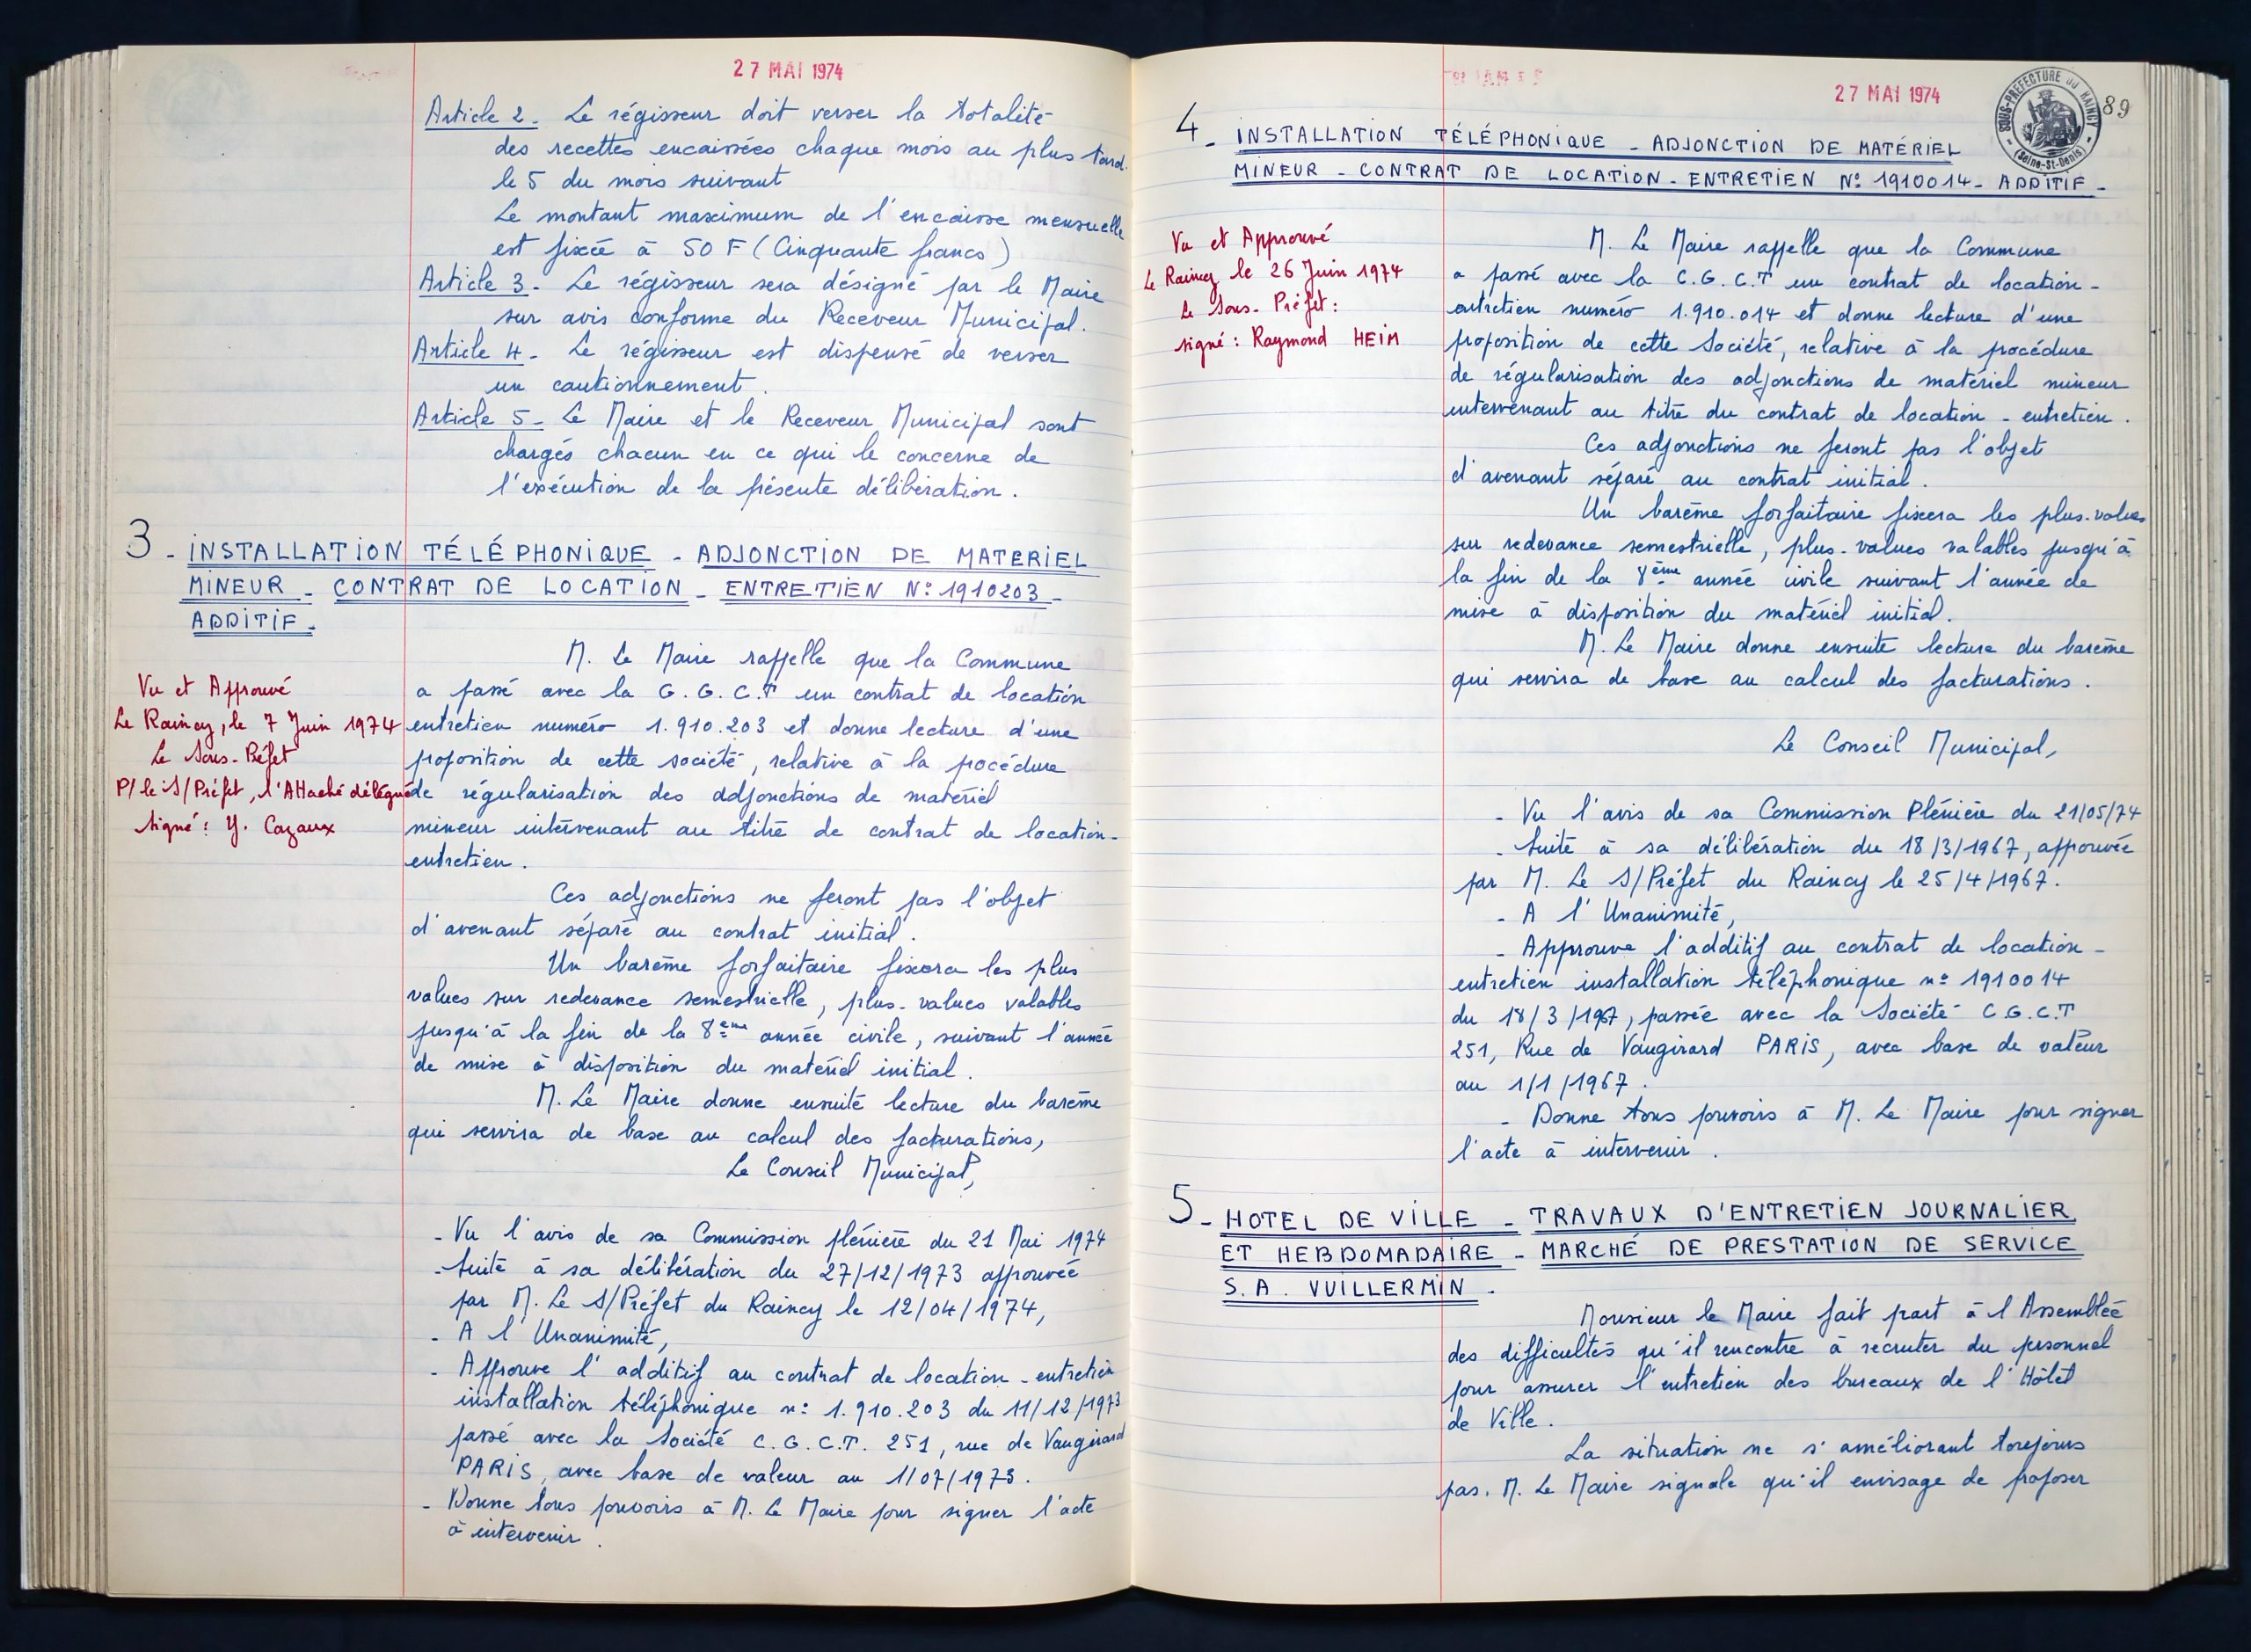 27 MAI 1974
Article 2 - Le régisseur doit verser la totalité
des recettes encaissées chaque mois au plus tard
le 5 du mois suivant
Le montant maximum de l'encaisse mensuelle
est fixée à 50 F (Cinquante francs)
Article 3 - Le régisseur sera désigné par le Maire
sur avis conforme du Receveur Municipal.
Article 4 - Le régisseur est dispensé de verser
un cautionnement.
Article 5 - Le Maire et le Receveur Municipal sont
chargés chacun en ce qui le concerne de
l'exécution de la présente délibération.
3 - INSTALLATION TÉLÉPHONIQUE - ADJONCTION DE MATERIEL
MINEUR - CONTRAT DE LOCATION - ENTRETIEN N° 1910203 -
ADDITIF -
Vu et Approuvé
Le Raincy, le 7 Juin 1974
Le Sous-Préfet
P/ le S/Préfet, l'Attaché délégué
signé : Y. Cazaux
M. Le Maire rappelle que la Commune
a passé avec la G.G.C.T un contrat de location
entretien numéro 1.910.203 et donne lecture d'une
proposition de cette société, relative à la procédure
de régularisation des adjonctions de matériel
mineur intervenant au titre de contrat de location-
entretien.
Ces adjonctions ne feront pas l'objet
d'avenant séparé au contrat initial.
Un barème forfaitaire fixera les plus
values sur redevance semestrielle, plus-values valables
jusqu'à la fin de la 8ème année civile, suivant l'année
de mise à disposition du matériel initial.
M. Le Maire donne ensuite lecture du barème
qui servira de base au calcul des facturations,
Le Conseil Municipal,
- Vu l'avis de sa Commission plénière du 21 Mai 1974
- Suite à sa délibération du 27/12/1973 approuvée
par M. Le S/Préfet du Raincy le 12/04/1974,
- A l'Unanimité,
- Approuve l'additif au contrat de location-entretien
installation téléphonique n° 1.910.203 du 11/12/1973
passé avec la Société C.G.C.T. 251, rue de Vaugirard
PARIS, avec base de valeur au 1/07/1973.
- Donne tous pouvoirs à M. Le Maire pour signer l'acte
à intervenir.
27 MAI 1974
SOUS-PRÉFECTURE DU RAINCY
(Seine-St-Denis)
89
4 - INSTALLATION TÉLÉPHONIQUE - ADJONCTION DE MATÉRIEL
MINEUR - CONTRAT DE LOCATION - ENTRETIEN N° 1910014 - ADDITIF -
Vu et Approuvé
Le Raincy le 26 Juin 1974
Le Sous-Préfet :
signé : Raymond HEIM
M. Le Maire rappelle que la Commune
a passé avec la C.G.C.T un contrat de location-
entretien numéro 1.910.014 et donne lecture d'une
proposition de cette Société, relative à la procédure
de régularisation des adjonctions de matériel mineur
intervenant au titre du contrat de location - entretien.
Ces adjonctions ne feront pas l'objet
d'avenant séparé au contrat initial.
Un barème forfaitaire fixera les plus-values
sur redevance semestrielle, plus-values valables jusqu'à
la fin de la 8ème année civile suivant l'année de
mise à disposition du matériel initial.
M. Le Maire donne ensuite lecture du barème
qui servira de base au calcul des facturations.
Le Conseil Municipal,
- Vu l'avis de sa Commission Plénière du 21/05/74
- Suite à sa délibération du 18/3/1967, approuvée
par M. Le S/Préfet du Raincy le 25/4/1967.
- A l'Unanimité,
- Approuve l'additif au contrat de location -
entretien installation téléphonique n° 1910014
du 18/3/1967, passée avec la Société C.G.C.T
251, Rue de Vaugirard PARIS, avec base de valeur
au 1/1/1967.
- Donne tous pouvoirs à M. Le Maire pour signer
l'acte à intervenir.
5 - HOTEL DE VILLE - TRAVAUX D'ENTRETIEN JOURNALIER
ET HEBDOMADAIRE - MARCHÉ DE PRESTATION DE SERVICE
S.A. VUILLERMIN -
Monsieur le Maire fait part à l'Assemblée
des difficultés qu'il rencontre à recruter du personnel
pour assurer l'entretien des bureaux de l'Hôtel
de Ville.
La situation ne s'améliorant toujours
pas. M. Le Maire signale qu'il envisage de proposer